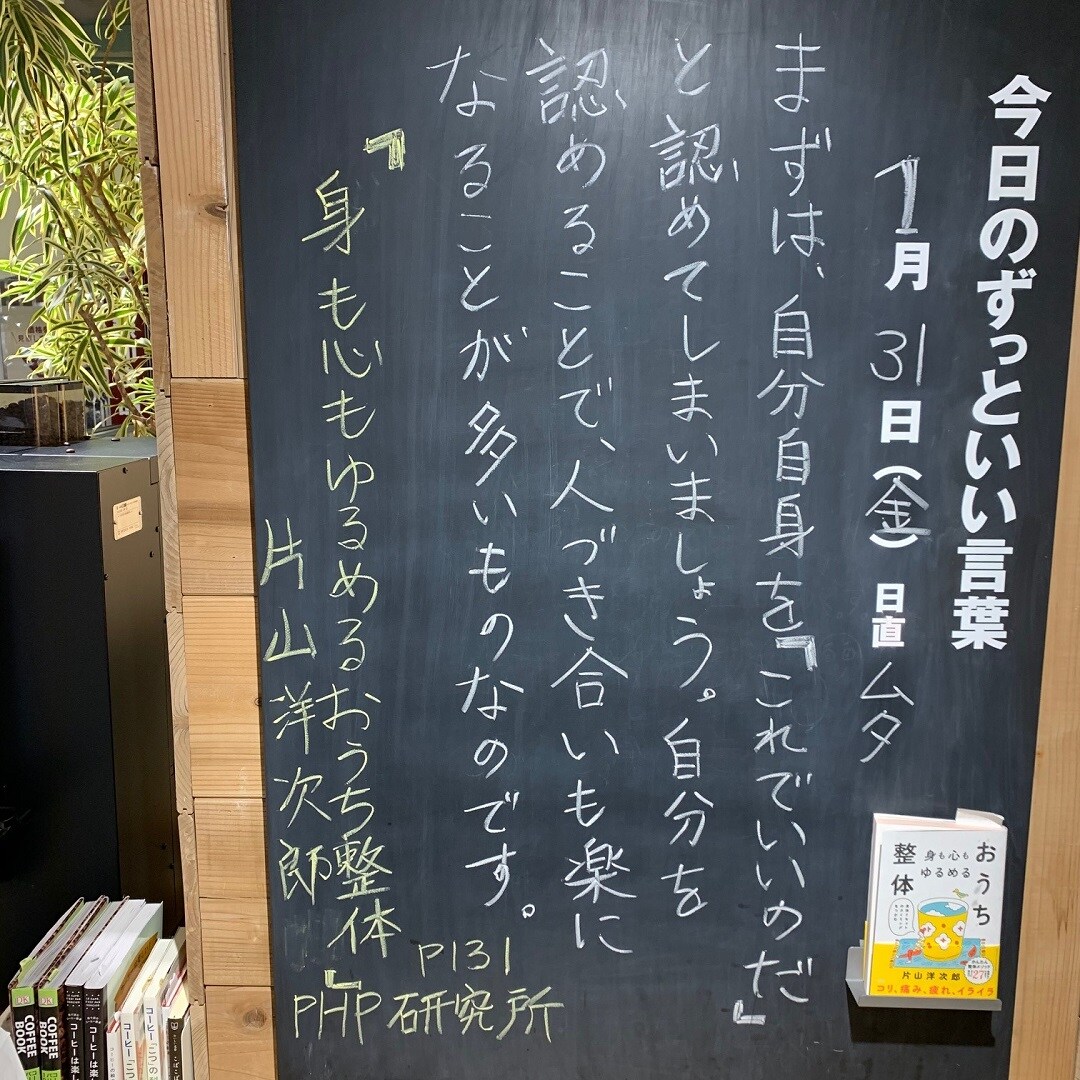 今日のずっといい言葉
1月31日(金)日直 ムタ
まずは、自分自身を『これでいいのだ』
と認めてしまいましょう。自分を
認めることで、人づき合いも楽に
なることが多いものなのです。
『身も心もゆるめるおうち整体』
片山洋次郎
P131
PHP研究所
おうち
身も心も
ゆるめる
整体
片山洋次郎
コリ、痛み、疲れ、イライラ
COFFEE BOOK
COFFEE BOOK
コーヒーは楽し
コーヒーは楽し
コーヒー「こつ」の
コーヒー「こつ